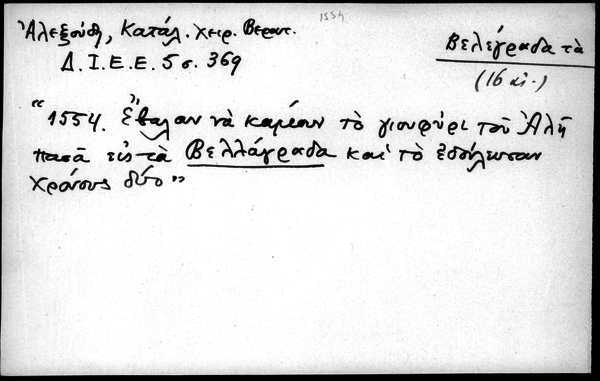 1554
Ἀλεξούδη, Κατάλ. χειρ. Βερατ.
Δ.Ι.Ε.Ε. 5 σ. 369
Βελέγραδα τὰ
(16 αἰ.)
"1554. Ἔβαλαν νὰ κάμουν τὸ γιουφύρι τοῦ Ἀλῆ
πασᾶ εἰς τὰ Βελλάγραδα καὶ τὸ ἐδούλευσαν
χρόνους δύο"